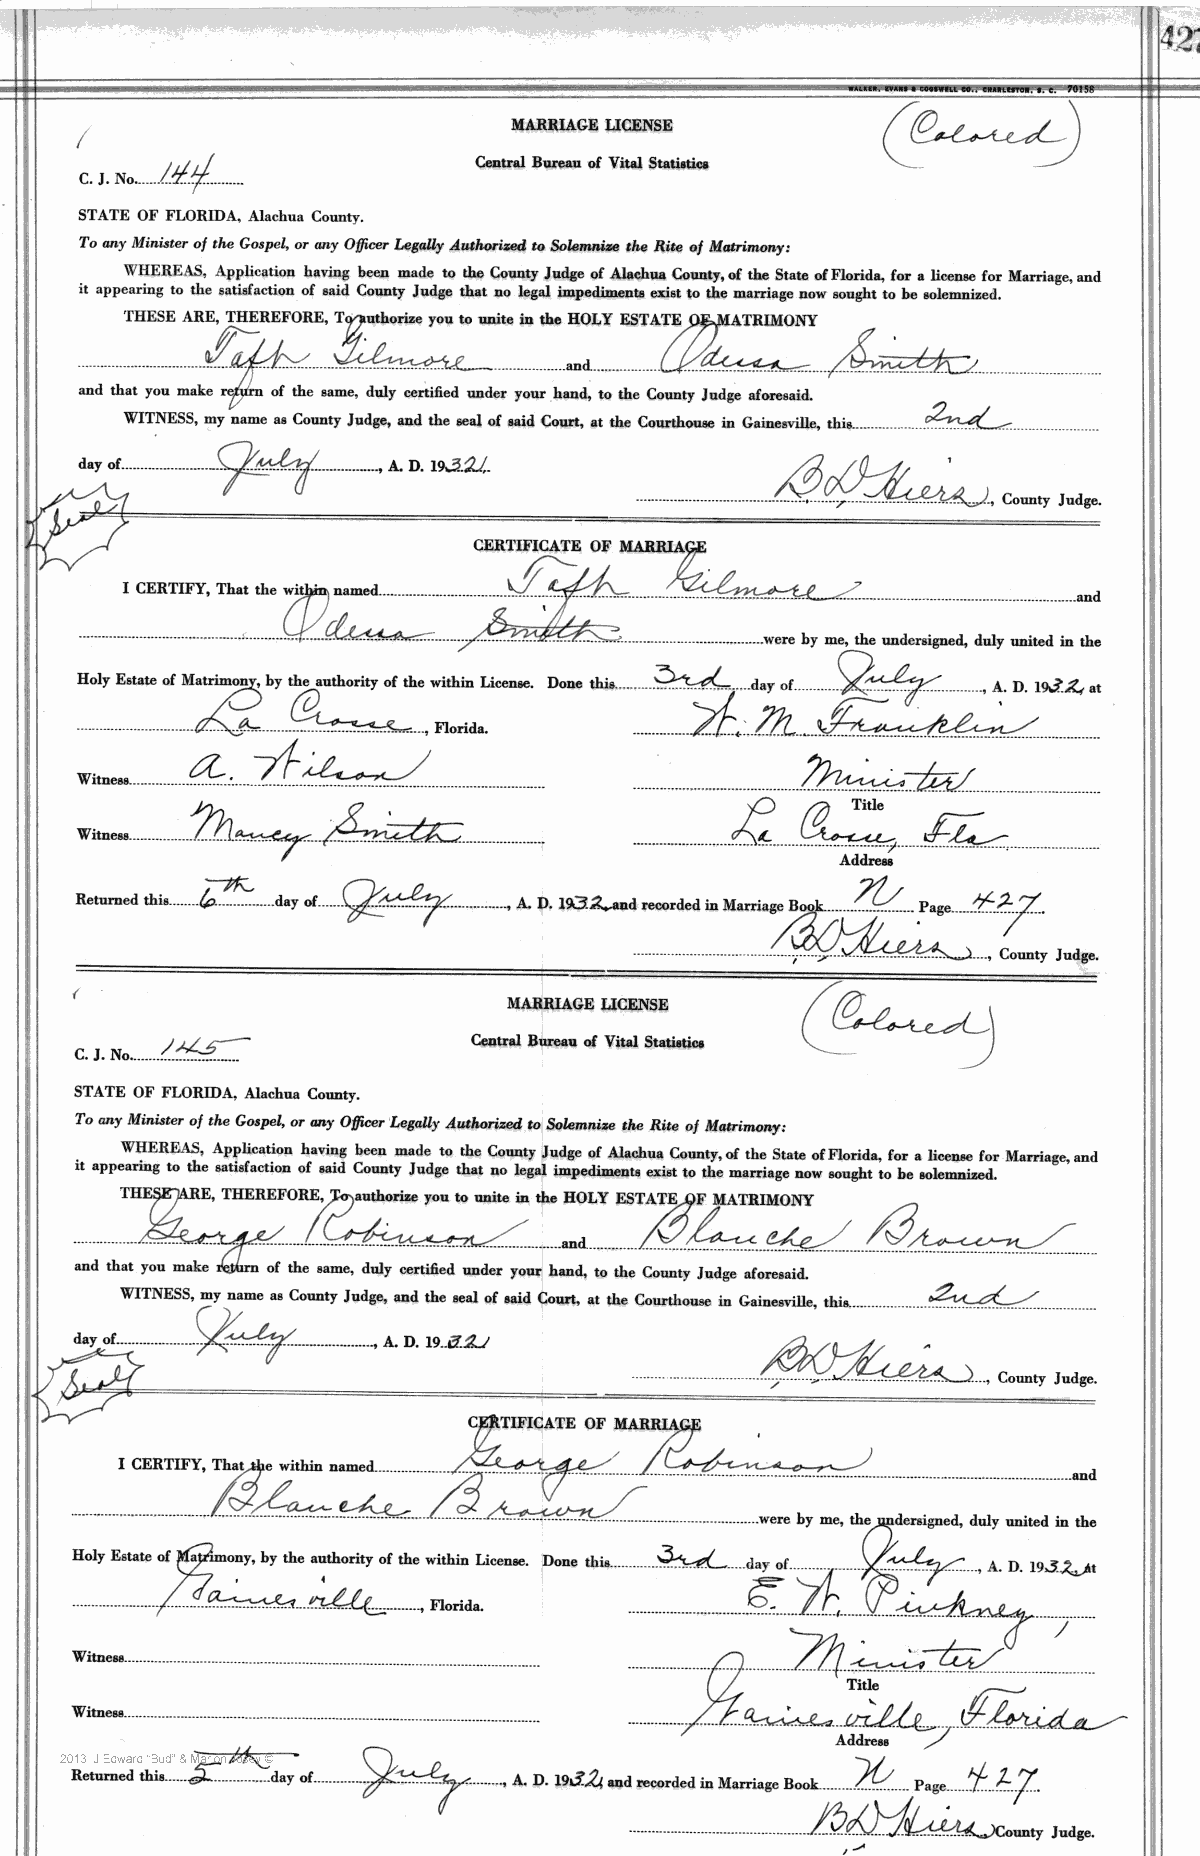 427
WALKER, EVANS & COGSWELL CO., CHARLESTON, S. C. 70158
MARRIAGE LICENSE (Colored)
Central Bureau of Vital Statistics
C. J. No. 144
STATE OF FLORIDA, Alachua County.
To any Minister of the Gospel, or any Officer Legally Authorized to Solemnize the Rite of Matrimony:
WHEREAS, Application having been made to the County Judge of Alachua County, of the State of Florida, for a license for Marriage, and
it appearing to the satisfaction of said County Judge that no legal impediments exist to the marriage now sought to be solemnized.
THESE ARE, THEREFORE, To authorize you to unite in the HOLY ESTATE OF MATRIMONY
Taft Gilmore and Odessa Smith
and that you make return of the same, duly certified under your hand, to the County Judge aforesaid.
WITNESS, my name as County Judge, and the seal of said Court, at the Courthouse in Gainesville, this 2nd
day of July, A. D. 1932.
B. D. Hiers, County Judge.
Seal
CERTIFICATE OF MARRIAGE
I CERTIFY, That the within named Taft Gilmore and
Odessa Smith were by me, the undersigned, duly united in the
Holy Estate of Matrimony, by the authority of the within License. Done this 3rd day of July, A. D. 1932, at
La Crosse, Florida. W. M. Franklin
Witness A. Wilson Minister
Title
Witness Maucy Smith La Crosse, Fla
Address
Returned this 6th day of July, A. D. 1932, and recorded in Marriage Book N Page 427.
B. D. Hiers, County Judge.
MARRIAGE LICENSE (Colored)
Central Bureau of Vital Statistics
C. J. No. 145
STATE OF FLORIDA, Alachua County.
To any Minister of the Gospel, or any Officer Legally Authorized to Solemnize the Rite of Matrimony:
WHEREAS, Application having been made to the County Judge of Alachua County, of the State of Florida, for a license for Marriage, and
it appearing to the satisfaction of said County Judge that no legal impediments exist to the marriage now sought to be solemnized.
THESE ARE, THEREFORE, To authorize you to unite in the HOLY ESTATE OF MATRIMONY
George Robinson and Blanche Brown
and that you make return of the same, duly certified under your hand, to the County Judge aforesaid.
WITNESS, my name as County Judge, and the seal of said Court, at the Courthouse in Gainesville, this 2nd
day of July, A. D. 1932
B. D. Hiers, County Judge.
Seal
CERTIFICATE OF MARRIAGE
I CERTIFY, That the within named George Robinson and
Blanche Brown were by me, the undersigned, duly united in the
Holy Estate of Matrimony, by the authority of the within License. Done this 3rd day of July, A. D. 1932, at
Gainesville, Florida. E. W. Pinkney,
Witness Minister
Title
Witness Gainesville, Florida
Address
2013 J Edward "Bud" & Marion Josey ©
Returned this 5th day of July, A. D. 1932, and recorded in Marriage Book N Page 427.
B. D. Hiers, County Judge.